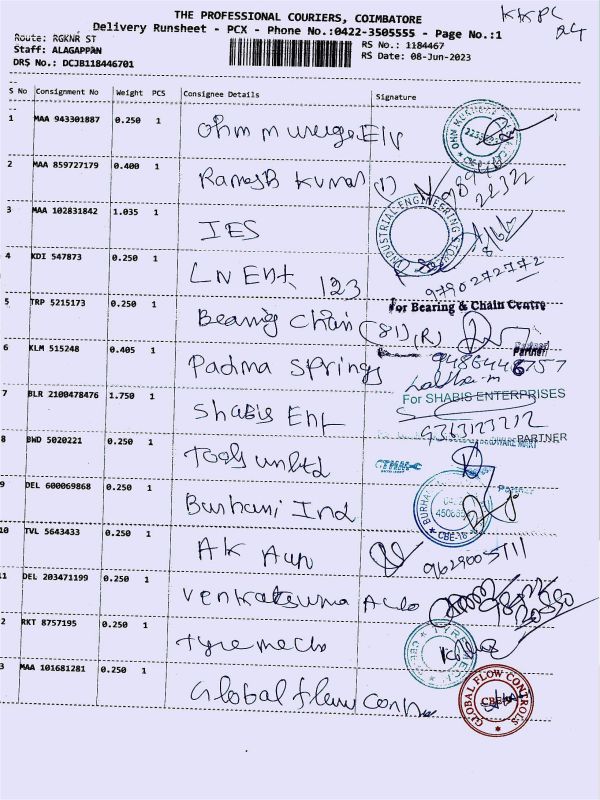 THE PROFESSIONAL COURIERS, COIMBATORE
KKPC
24
Delivery Runsheet - PCX - Phone No.:0422-3505555 - Page No.:1
Route: RGKNR ST
RS No.: 1184467
Staff: ALAGAPPAN
RS Date: 08-Jun-2023
DRS No.: DCJB118446701
S No Consignment No Weight PCS Consignee Details Signature
1 MAA 943301887 0.250 1 Ohm Muruga Elv
2 MAA 859727179 0.400 1 Ramesh Kumar (1)
22322
3 MAA 102831842 1.035 1 IES
INDUSTRIAL ENGINEERING STORES
4 KDI 547873 0.250 1 LN Ent 123 9790272772
For Bearing & Chain Centre
5 TRP 5215173 0.250 1 Bearing Chain (81) (R)
Partner
6 KLM 515248 0.405 1 Padma Springs
Lalitha.m
For SHABIS ENTERPRISES
7 BLR 2100478476 1.750 1 Shabis Ent 9363123212
PARTNER
8 BWD 5020221 0.250 1 Tools unltd
9 DEL 600069868 0.250 1 Burhani Ind
CBE-18
10 TVL 5643433 0.250 1 AK Auto 9629005111
11 DEL 203471199 0.250 1 Venkateswara Auto
2 RKT 8757195 0.250 1 Tyremech
3 MAA 101681281 0.250 1 Global flow Cont
GLOBAL FLOW CONTROLS